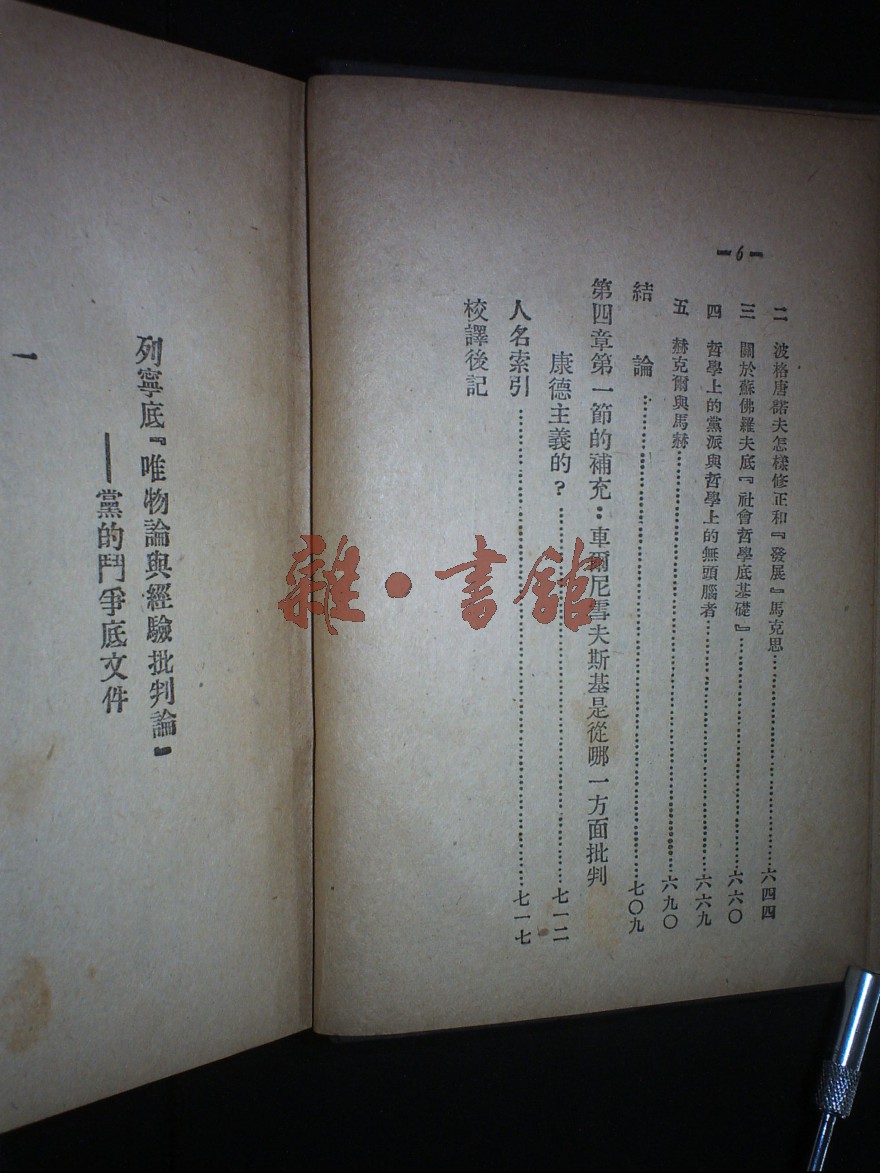 —6—
二　波格唐諾夫怎樣修正和『發展』馬克思……六四四
三　關於蘇佛羅夫底『社會哲學底基礎』……六六〇
四　哲學上的黨派與哲學上的無頭腦者……六六九
五　赫克爾與馬赫……六九〇
結　論……七〇九
第四章第一節的補充：車爾尼雪夫斯基是從哪一方面批判
康德主義的？……七一二
人名索引……七一七
校譯後記
列寧底『唯物論與經驗批判論』
——黨的鬥爭底文件
一
雜·書館